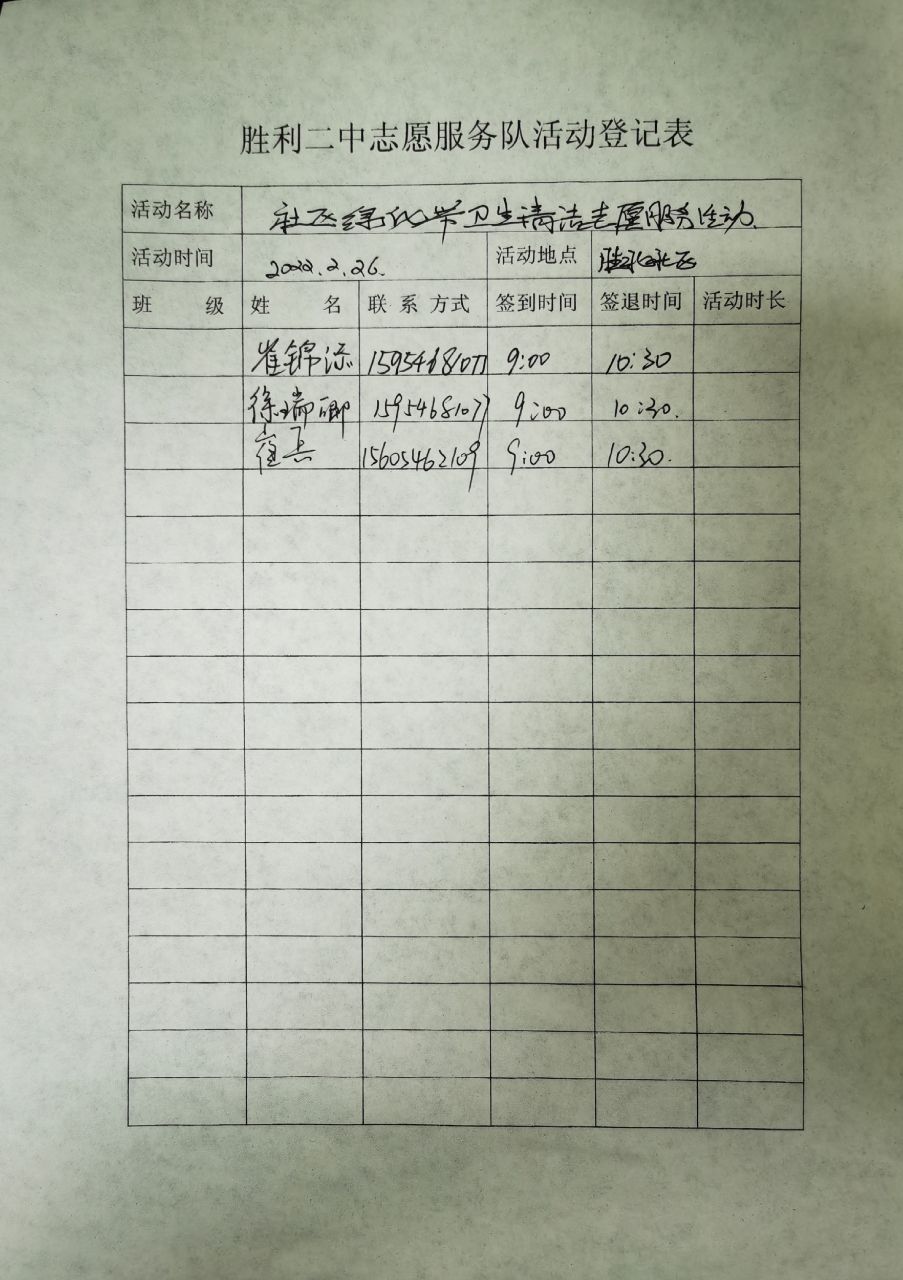 胜利二中志愿服务队活动登记表
活动名称 社区绿化带卫生清洁志愿服务活动
活动时间 2022.2.26. 活动地点 胜北社区
班 级 姓 名 联系方式 签到时间 签退时间 活动时长
崔锦添 15954681077 9:00 10:30
徐瑞卿 15954681077 9:00 10:30.
15605462109 9:00 10:30.